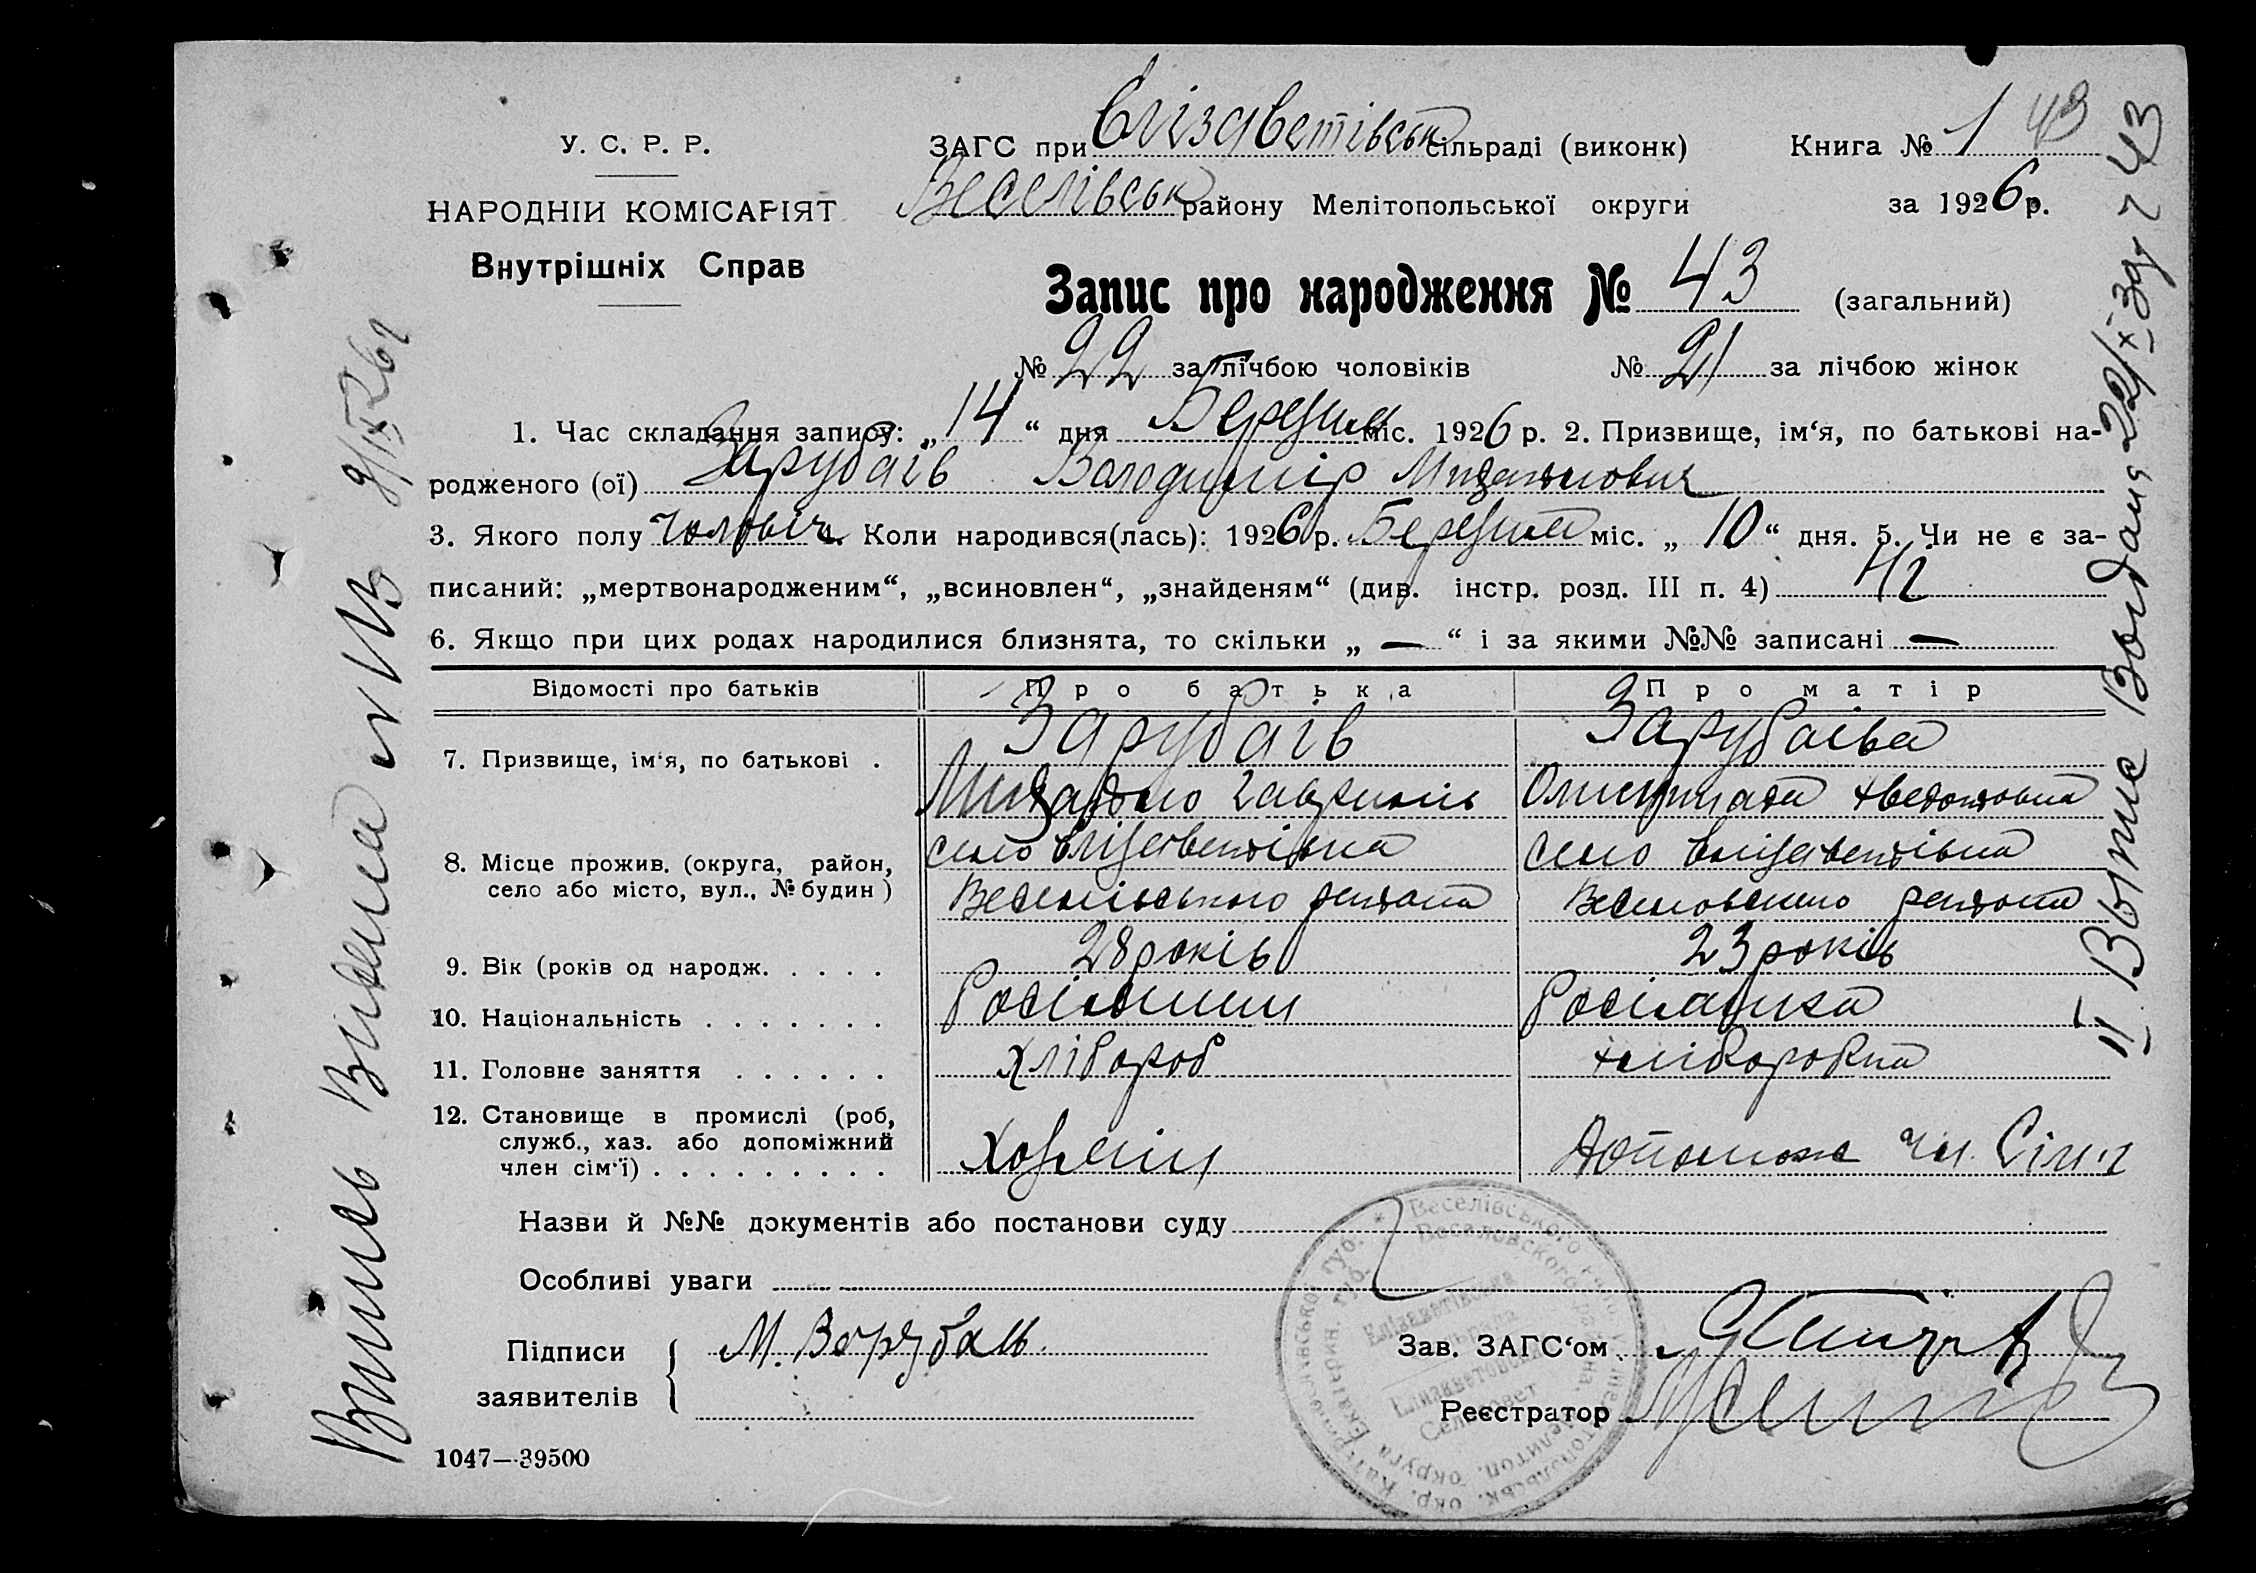 У. С. Р. Р.
НАРОДНІЙ КОМІСАРІЯТ
Внутрішніх Справ
ЗАГС при Єлізаветівськ сільраді (виконк) Книга № 1 43
Веселівськ району Мелітопольської округи за 1926 р.
Запис про народження № 43 (загальний)
№ 22 за лічбою чоловіків № 21 за лічбою жінок
1. Час складання запису: „14“ дня Березня міс. 1926 р. 2. Призвище, ім‘я, по батькові на-
родженого (ої) Зарубаів Володимір
3. Якого полу чоловіч. Коли народився(лась): 1926 р. Березня міс. „10“ дня. 5. Чи не є за-
писаний: „мертвонародженим“, „всиновлен“, „знайденям“ (див. інстр. розд. III п. 4) Ні
6. Якщо при цих родах народилися близнята, то скільки „ — “ і за якими №№ записані —
Відомості про батьків Про батька Про матір
7. Призвище, ім‘я, по батькові . Зарубаів Зарубаіва
8. Місце прожив. (округа, район, село або місто, вул., № будин ) село Єлізаветівка село Єлізаветівка
Веселівського району Веселовського району
9. Вік (років од народж. . . . . 28 років 23 років
10. Національність . . . . . . . Росіянин Росіянка
11. Головне заняття . . . . . . Хлібороб Хліборобка
12. Становище в промислі (роб, служб., хаз. або допоміжний член сім‘ї) . . . . . . . . . Хозяін Допомож чл. Сім'ї
Назви й №№ документів або постанови суду
Особливі уваги
Підписи заявителів М. Зарубаів.
Зав. ЗАГС‘ом
Реєстратор
1047—39500
Веселівського
Веселовского
Єлізаветівська
Елизаветовский
Сельсовет
Випись Видана № 113 9/IX 26 г
II Выпис Выдана 22/IX 39 г 43